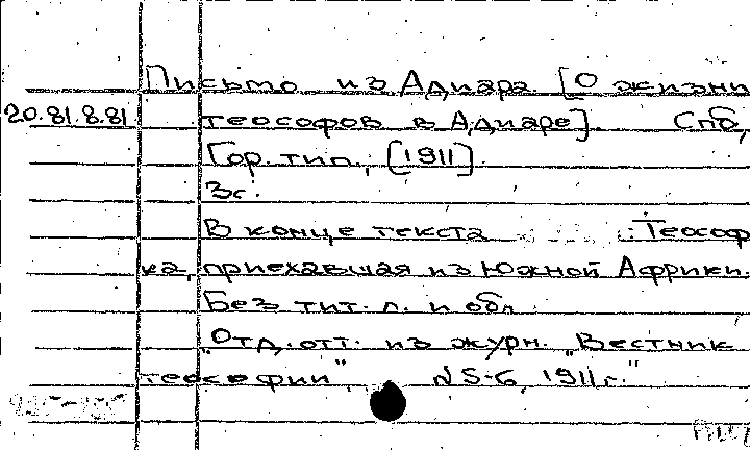 Письмо из Адиара [О жизни
20.81.8.81 теософов в Адиаре]. Спб,
Гор. тип., [1911].
3с.
В конце текста : Теософ
ка, приехавшая из Южной Африки.
Без тит. л. и обл.
"Отд. отт. из журн. „Вестник
теософии", N 5-6, 1911г."